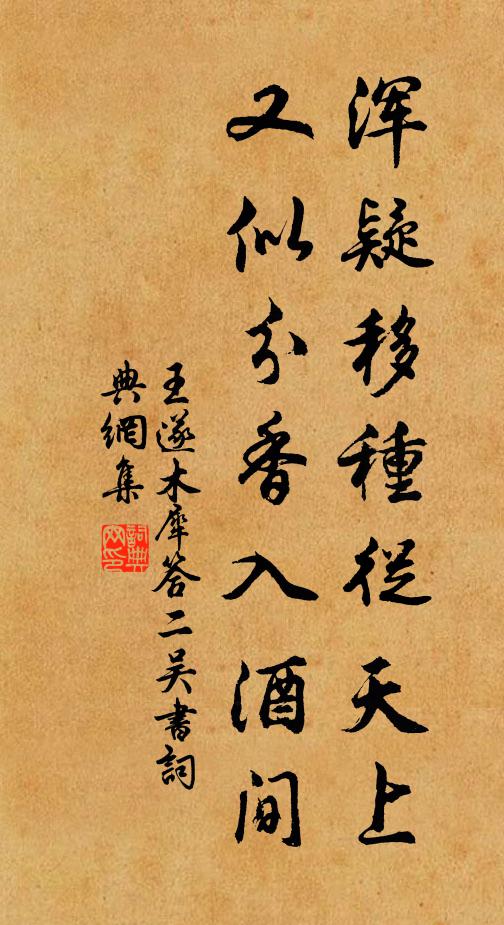 浑疑移種從天上
又似分香入酒间
王遂木犀答二吴書詞
典網集
詞典
网印